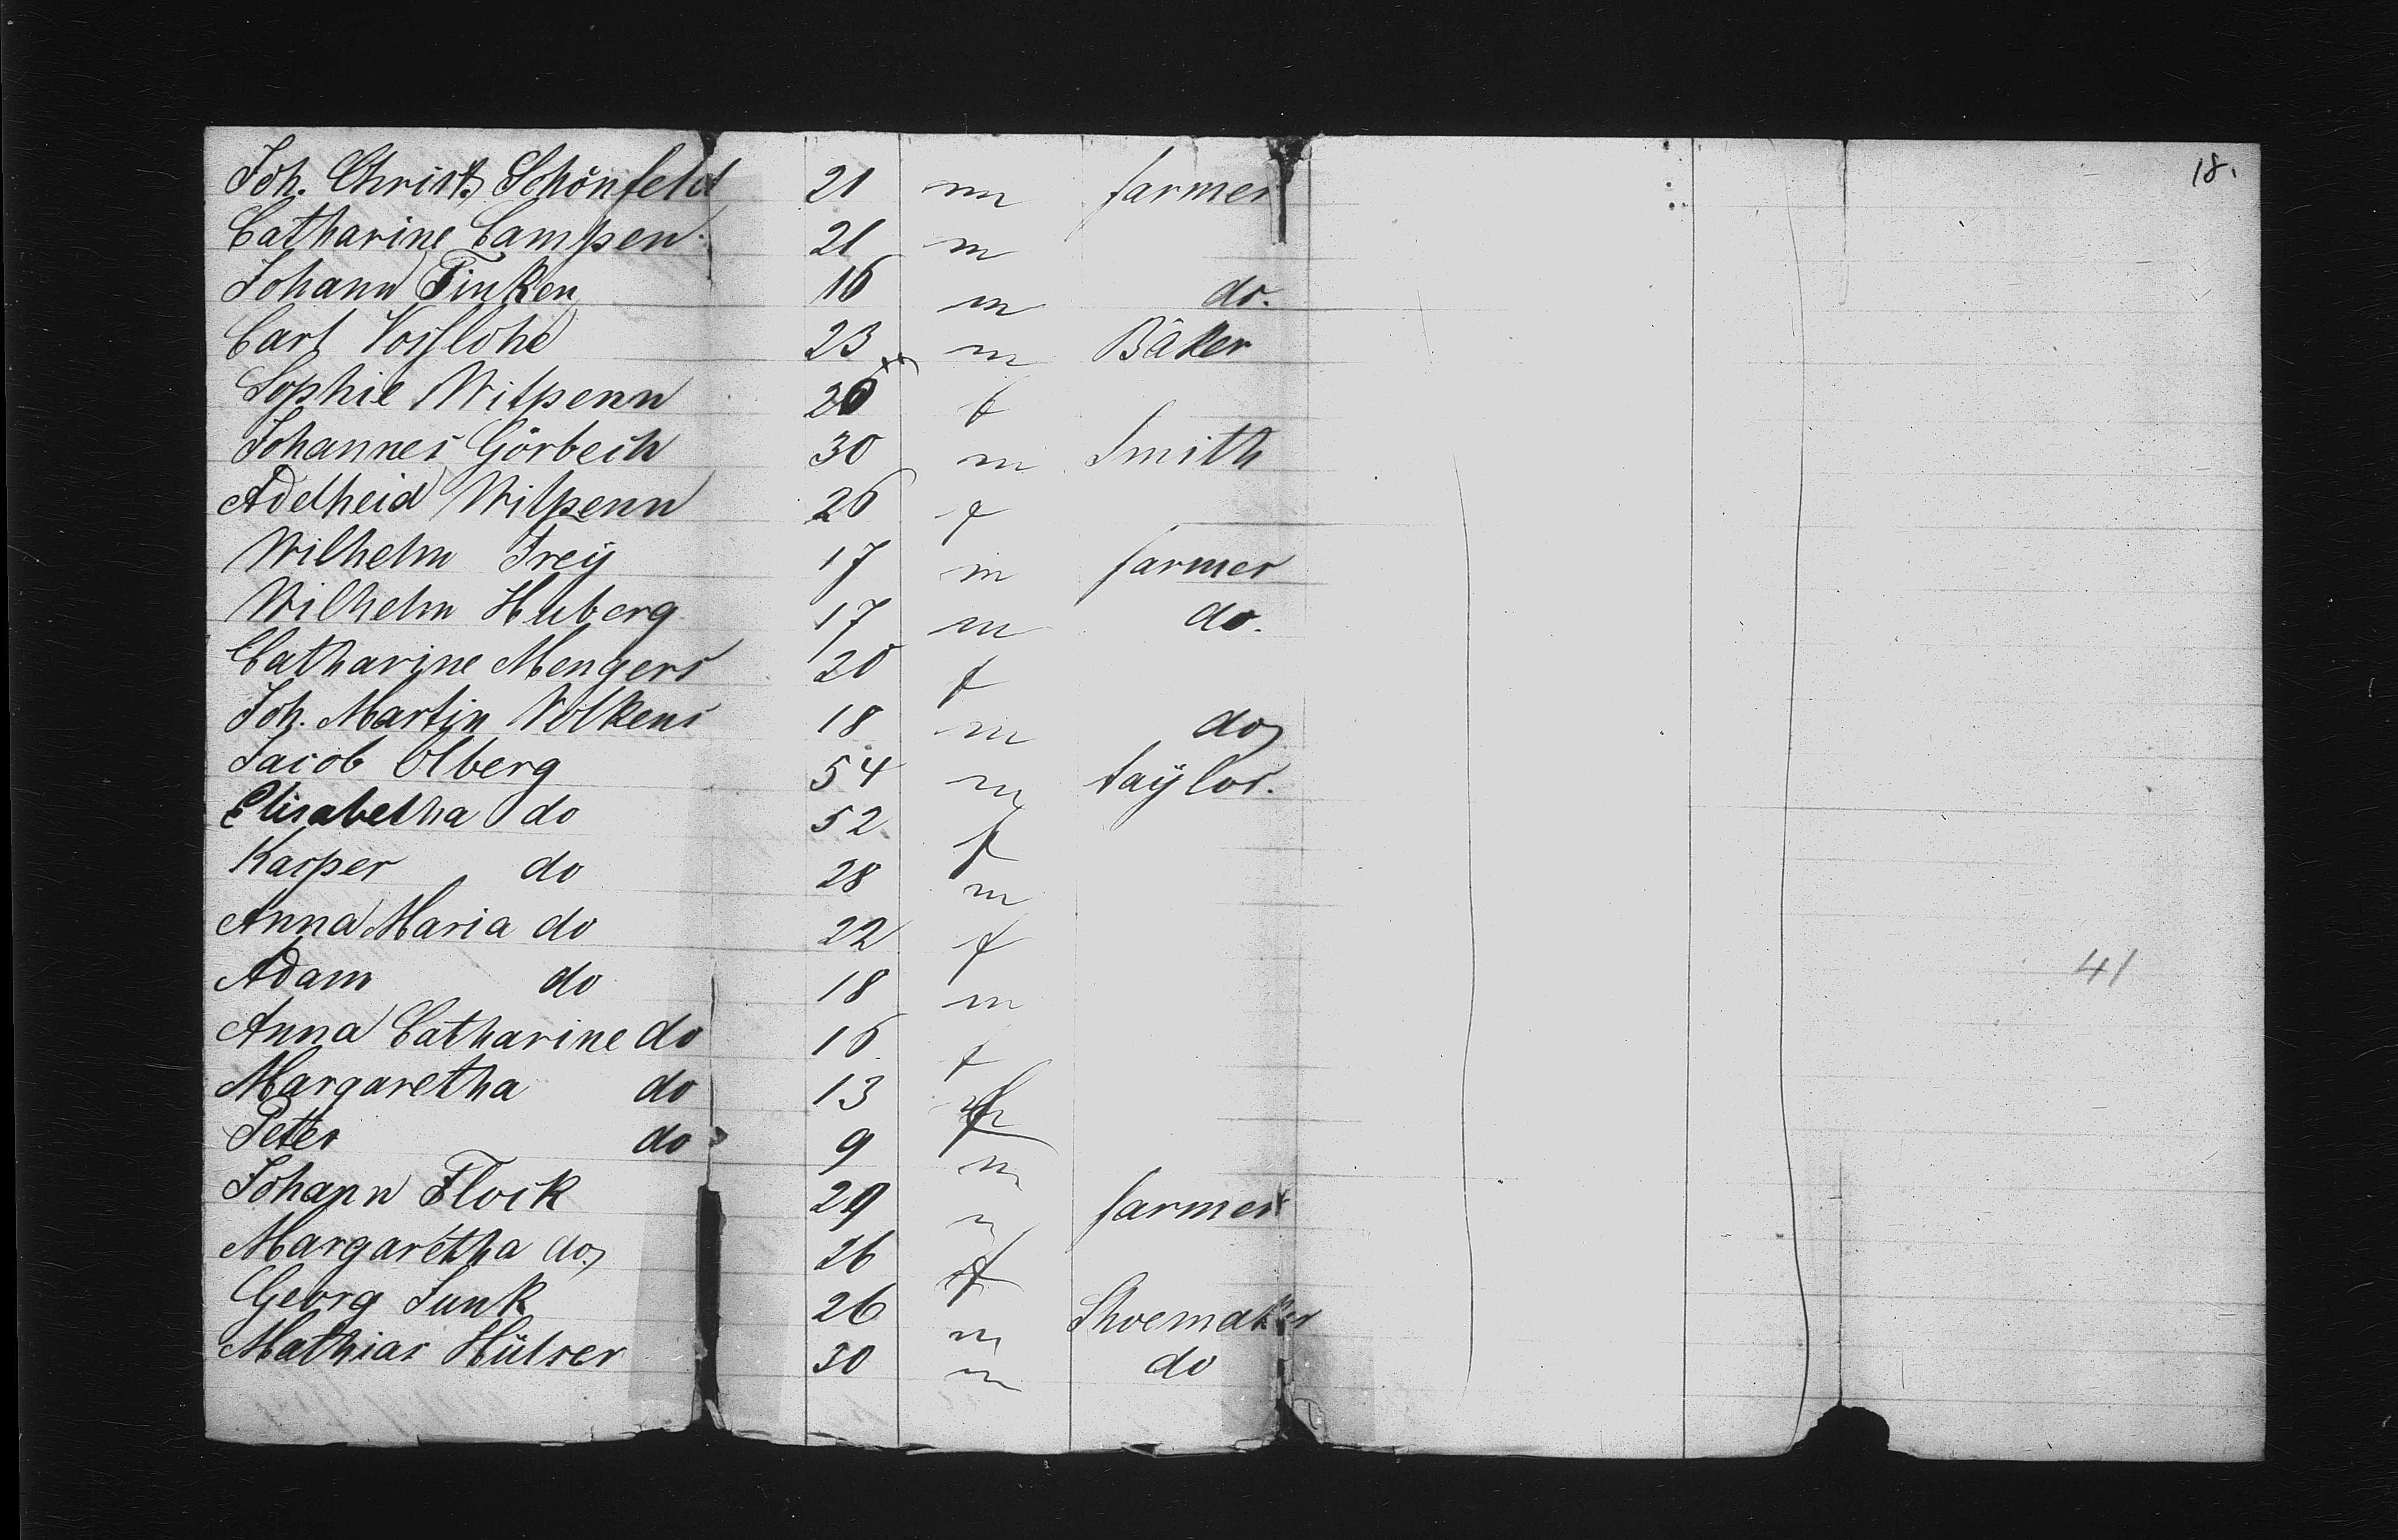 18.
Joh. Christ. Schönfeld 21 m farmer
Catharine Campen 21 m
Johann Finken 16 m do.
Carl Vosslohe 23 m Bäker
Sophie Wilpenn 26 f
Johannes Görbech 30 m Smith
Adelheid Wilpenn 26 f
Wilhelm Frey 17 m farmer
Wilhelm Huberg 17 m do.
Catharine Mengers 20 f
Joh. Martin Volkens 18 m do
Jacob Olberg 54 m taylor.
Elisabetha do 52 f
Kasper do 28 m
Anna Maria do 22 f
Adam do 18 m
41
Anna Catharine do 16 f
Margaretha do 13 f
Peter do 9 m
Johann Flock 29 m farmer
Margaretha do 26 f
Georg Junk 26 m Shoemaker
Mathias Hülser 30 m do